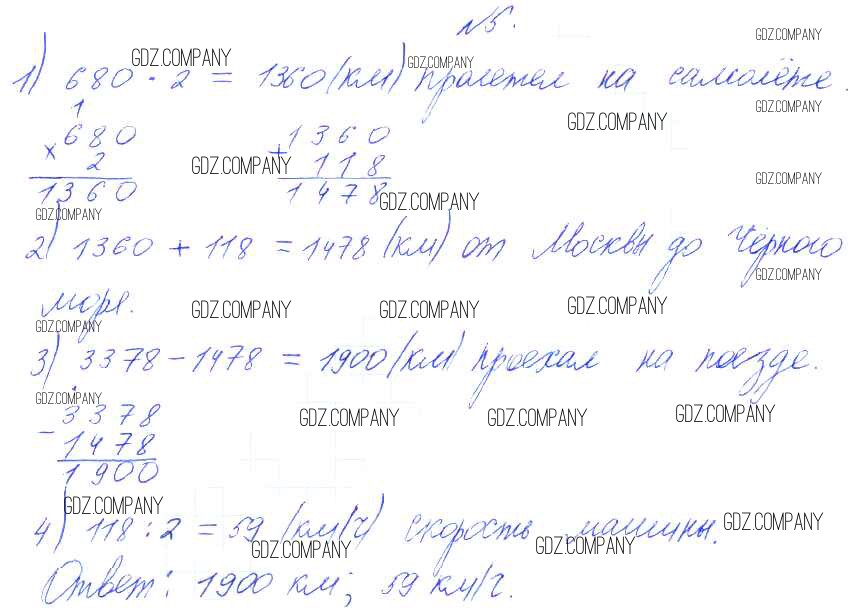 №5.
1) 680 · 2 = 1360 (км) пролетел на самолёте.
GDZ.COMPANY GDZ.COMPANY GDZ.COMPANY
1
× 680 + 1360 GDZ.COMPANY GDZ.COMPANY
2 118 GDZ.COMPANY GDZ.COMPANY
1360 1478 GDZ.COMPANY
GDZ.COMPANY
2) 1360 + 118 = 1478 (км) от Москвы до Чёрного
GDZ.COMPANY
моря. GDZ.COMPANY GDZ.COMPANY GDZ.COMPANY
GDZ.COMPANY
3) 3378 – 1478 = 1900 (км) проехал на поезде.
GDZ.COMPANY
– 3378 GDZ.COMPANY GDZ.COMPANY GDZ.COMPANY
1478
1900
GDZ.COMPANY
4) 118 : 2 = 59 (км/ч) скорость машины. GDZ.COMPANY
GDZ.COMPANY GDZ.COMPANY
Ответ: 1900 км; 59 км/ч.